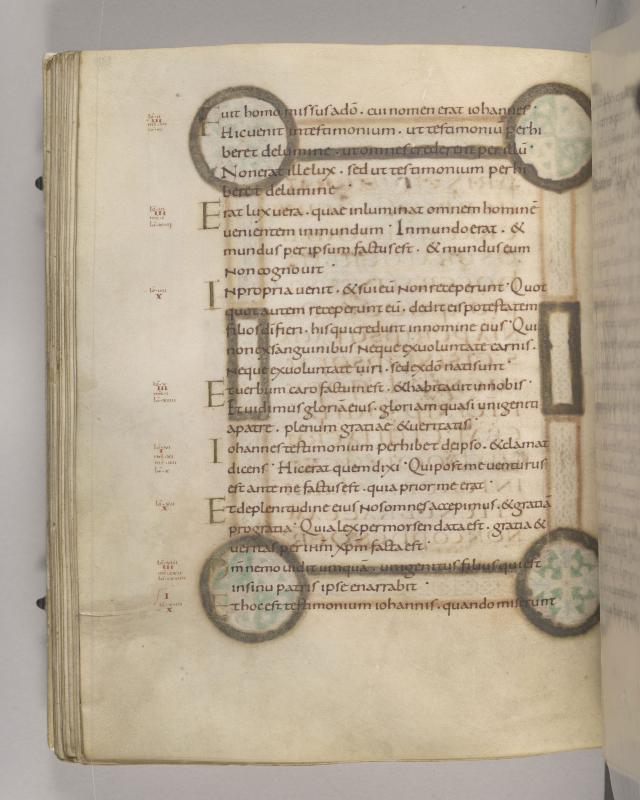 Fuit homo missus adō · cui nomen erat iohannes ·
Hic uenit intestimonium · ut testimoniū perhi
beret delumine · ut omnes crederent per illū ·
Non erat ille lux · sed ut testimonium perhi
beret delumine ·
Erat lux uera · quae inluminat omnem hominē
uenientem inmundum · Inmundo erat · &
mundus per ipsum factus est · & mundus eum
non cognouit ·
In propria uenit · & sui eū non receperunt · Quot
quot autem receperunt eū · dedit eis potestatem
filios dī fieri · his qui credunt innomine eius · Qui
non exsanguinibus neque exuoluntate carnis ·
neque exuoluntate uiri · sed exdō nati sunt ·
Et uerbum caro factum est · & habitauit innobis ·
Et uidimus gloriā eius · gloriam quasi unigeniti
apatre · plenum gratiae & ueritatis ·
Iohannes testimonium perhibet deipso · & clamat
dicens · Hic erat quem dixi · Qui post me uenturus
est ante me factus est · quia prior me erat ·
Et deplenitudine eius nos omnes accepimus · & gratiā
pro gratia · Quia lex per moysen data est · gratia &
ueritas per ihm̄ xp̄m facta est ·
Dm̄ nemo uidit umquā · unigenitus filius qui est
insinu patris ipse enarrabit ·
Et hoc est testimonium iohannis · quando miserunt